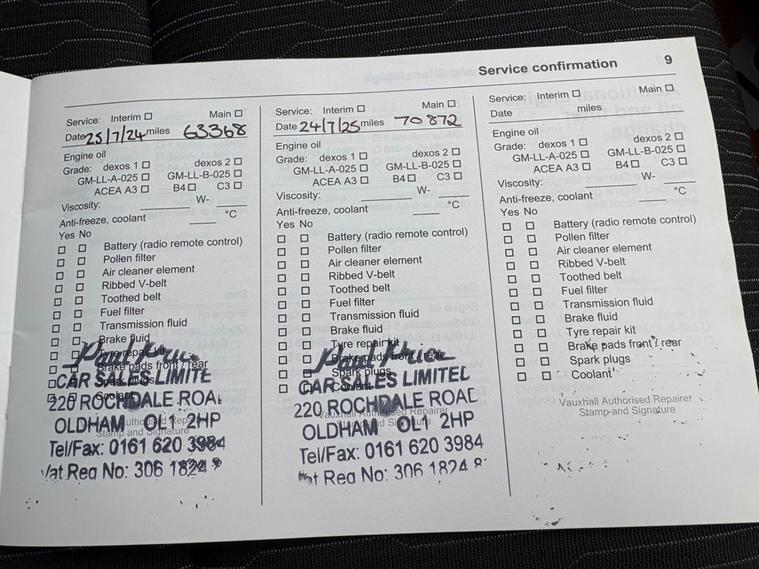 Service confirmation 9
Service: Interim Main
Date 25/7/24 miles 63368
Engine oil
Grade: dexos 1 dexos 2
GM-LL-A-025 GM-LL-B-025
ACEA A3 B4 C3
Viscosity: W-
Anti-freeze, coolant °C
Yes No
Battery (radio remote control)
Pollen filter
Air cleaner element
Ribbed V-belt
Toothed belt
Fuel filter
Transmission fluid
Brake fluid
Brake pads front / rear
CAR SALES LIMITE
220 ROCHDALE ROA
OLDHAM OL1 2HP
Stamp and Signature
Tel/Fax: 0161 620 3984
Vat Reg No: 306 1824
Service: Interim Main
Date 24/7/25 miles 70872
Engine oil
Grade: dexos 1 dexos 2
GM-LL-A-025 GM-LL-B-025
ACEA A3 B4 C3
Viscosity: W-
Anti-freeze, coolant °C
Yes No
Battery (radio remote control)
Pollen filter
Air cleaner element
Ribbed V-belt
Toothed belt
Fuel filter
Transmission fluid
Brake fluid
Tyre repair kit
Brake pads front / rear
Spark plugs
CAR SALES LIMITED
220 ROCHDALE ROAD
Vauxhall Authorised Repairer
OLDHAM OL1 2HP
Stamp and Signature
Tel/Fax: 0161 620 3984
Vat Reg No: 306 1824
Service: Interim Main
Date miles
Engine oil
Grade: dexos 1 dexos 2
GM-LL-A-025 GM-LL-B-025
ACEA A3 B4 C3
Viscosity: W-
Anti-freeze, coolant °C
Yes No
Battery (radio remote control)
Pollen filter
Air cleaner element
Ribbed V-belt
Toothed belt
Fuel filter
Transmission fluid
Brake fluid
Tyre repair kit
Brake pads front / rear
Spark plugs
Coolant
Vauxhall Authorised Repairer
Stamp and Signature